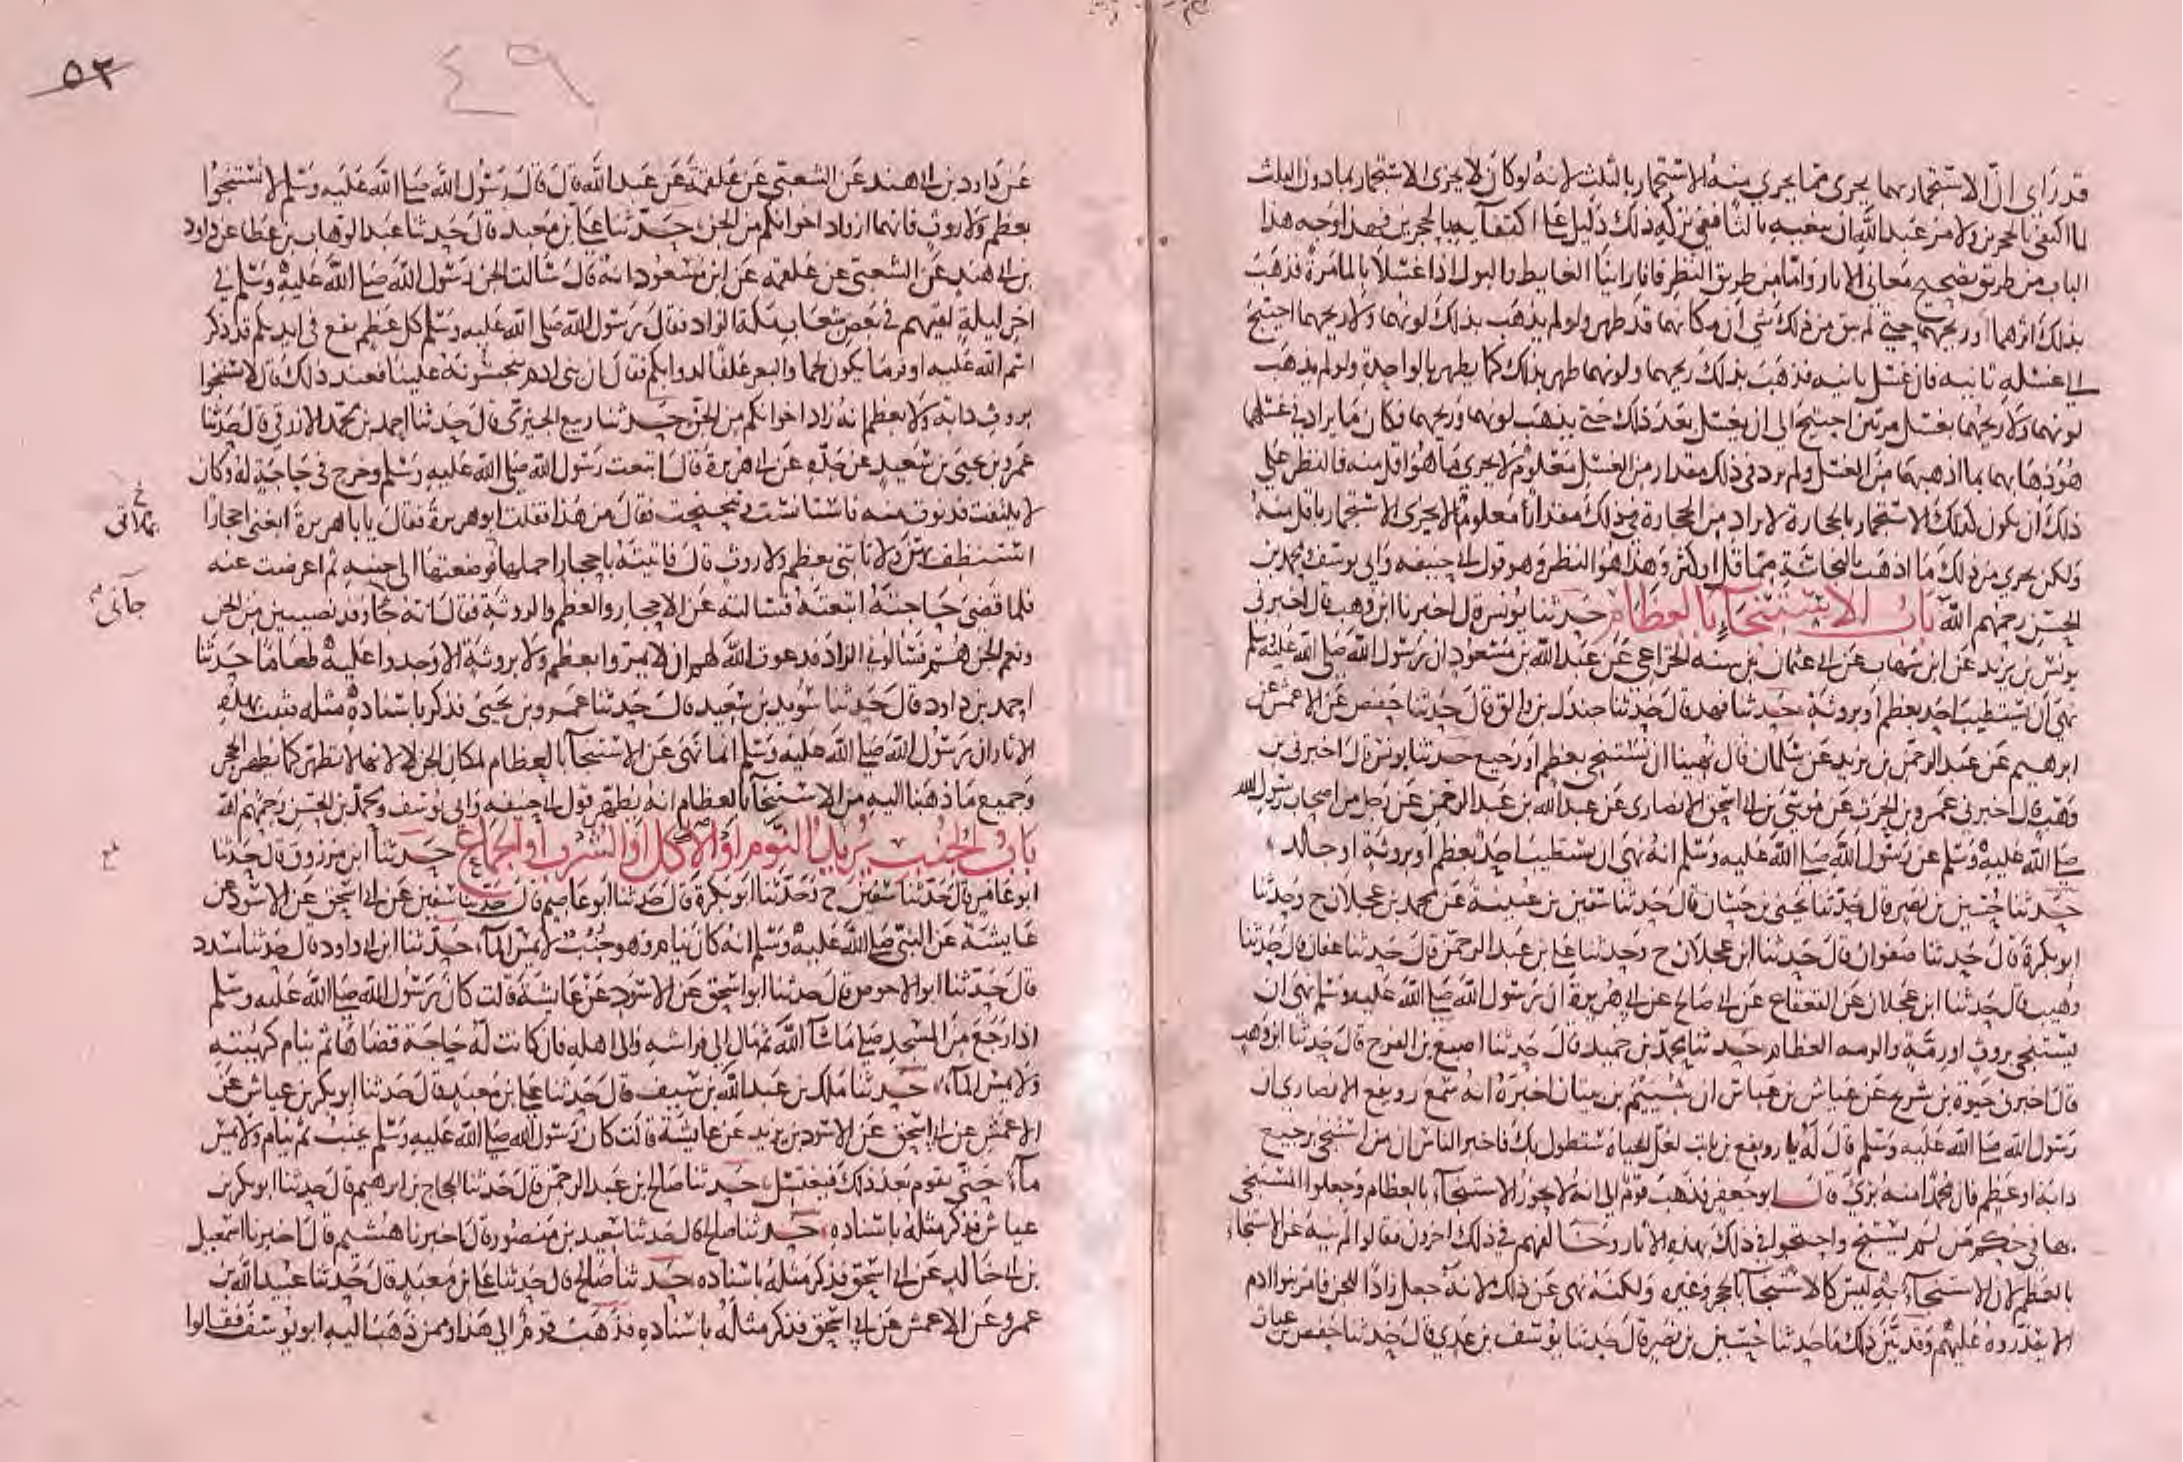 قد راى ان الاستجمار بهما يجزى مما يجزي منه الاستجمار بالثلث لانه لو كان لا يجزى الاستجمار بما دون الثلث
لما اكتفى بالحجرين ولامر عبد الله ان يبغيه ثالثا ففي تركه ذلك دليل على اكتفآيه بالحجرين فهذا وجه هذا
الباب من طريق تصحيح معاني الاثار واما من طريق النظر فانا راينا الغايط والبول اذا غسلا بالما مرة فذهب
بذلك اثرهما او ريحهما حتى لم يبق من ذلك شي ان مكانهما قد طهر ولو لم يذهب بذلك لونهما ولا ريحهما احتيج
الى غسله ثانيه فان غسل ثانيه فذهب بذلك ريحهما ولونهما طهر بذلك كما يطهر بالواحدة ولو لم يذهب
لونهما ولا ريحهما بغسل مرتين احتيج الى ان يغسل بعد ذلك حتى يذهب لونهما وريحهما فكان ما يراد في غسلهما
هو ذهابهما بما اذهبهما من الغسل ولم يرد في ذلك مقدار من الغسل معلوم لا يجزى ما هو اقل منه فالنظر على
ذلك ان يكون كذلك الاستجمار بالحجارة لا يراد من الحجارة في ذلك مقدارا معلوما لا يجزى الاستجمار باقل منه
ولكن يجزى من ذلك ما اذهب بالنجاسة مما قل او كثر وهذا هو النظر وهو قول ابي حنيفه وابي يوسف ومحمد بن
الحسن رحمهم الله باب الاستنجآء بالعظام حدثنا يونس قال اخبرنا ابن وهب قال اخبرنى
يونس بن يزيد عن ابن شهاب عن ابي عثمان بن سنه الخزاعي عن عبد الله بن مسعود ان رسول الله صلى الله عليه وسلم
نهى ان يستطيب احد بعظم او بروثة حدثنا فهد قال حدثنا جندل بن والق قال حدثنا حفص عن الاعمش عن
ابرهيم عن عبد الرحمن بن يزيد عن سلمان قال نهينا ان نستنجي بعظم او رجيع حدثنا يونس قال اخبرنى بن
وهب قال اخبرنى عمرو بن الحرث عن موسى بن ابي اسحق الانصاري عن عبد الله بن عبد الرحمن عن رجل من اصحاب رسول الله
صلى الله عليه وسلم عن رسول الله صلى الله عليه وسلم انه نهى ان يستطيب احد بعظم او بروثة او جلد
حدثنا حسين بن نصر قال حدثنا يحيى بن حسان قال حدثنا سفين بن عيينة عن محمد بن عجلان ح وحدثنا
ابو بكرة قال حدثنا صفوان قال حدثنا ابن عجلان ح وحدثنا علي بن عبد الرحمن قال حدثنا عفان قال حدثنا
وهيب قال حدثنا ابن عجلان عن القعقاع عن ابي صالح عن ابي هريرة ان رسول الله صلى الله عليه وسلم نهى ان
يستنجى بروث او رمة والرمه العظام حدثنا محمد بن حميد قال حدثنا اصبغ بن الفرج قال حدثنا ابن وهب
قال اخبرنى حيوة بن شريح عن عياش بن عباس ان شييم بن بيتان اخبره انه سمع رويفع الانصارى ان
رسول الله صلى الله عليه وسلم قال له يا رويفع بن ثابت لعل الحياة ستطول بك فاخبر الناس ان من استنجى برجيع
دابة او عظم فان محمدا منه برىء قال ابو جعفر فذهب قوم الى انه لا يجوز الاستنجآء بالعظام وجعلوا المستنجى
بها في حكم من لم يستنج واحتجوا في ذلك بهذه الاثار وخالفهم في ذلك اخرون فقالوا لم ينه عن الاستنجاء
بالعظم لان الاستنجآء به ليس كالاستنجآء بالحجر وغيره ولكنه نهى عن ذلك لانه جعل زادا للجن فامر بنوا ادم
الا يقذروه عليهم وقد بين ذلك ما حدثنا حسين بن نصر قال حدثنا يوسف بن عدي قال حدثنا حفص بن غياث
٥٣
٤٩
عن داود بن ابي هند عن الشعبي عن علقمة عن عبد الله قال قال رسول الله صلى الله عليه وسلم لا تستنجوا
بعظم ولا روث فانهما ازواد اخوانكم من الجن حدثنا علي بن معبد قال حدثنا عبد الوهاب بن عطا عن داود
بن ابي هند عن الشعبي عن علقمة عن ابن مسعود انه قال سالت الجن رسول الله صلى الله عليه وسلم في
اخر ليلة لقيهم في بعض شعاب مكة الزاد فقال رسول الله صلى الله عليه وسلم كل عظم يقع في ايديكم قد ذكر
اسم الله عليه اوفر ما يكون لحما والبعر علفا لدوابكم فقال ان بنى ادم ينجسونه علينا فعند ذلك قال لا تستنجوا
بروث دابة ولا بعظم انه زاد اخوانكم من الجن حدثنا ربيع الجيزي قال حدثنا احمد بن محمد الازرقى قال حدثنا
عمرو بن يحيى بن سعيد عن جده عن ابي هريرة قال اتبعت رسول الله صلى الله عليه وسلم وخرج في حاجة له وكان
لا يلتفت فدنوت منه فاستانست وتنحنحت فقال من هذا فقلت ابو هريرة فقال يابا هريرة ابغنى احجارا
استنظف بهن ولا تاتنى بعظم ولا روث قال فاتيته باحجار احملها فوضعتها الى جنبه ثم اعرضت عنه
فلما قضى حاجته اتبعته فسالته عن الاحجار والعظم والروثة فقال انه جآء وفد نصيبين من الجن
ونعم الجن هم فسالوني الزاد فدعوت الله لهم ان لا يمروا بعظم ولا بروثة الا وجدوا عليه طعاما حدثنا
احمد بن داود قال حدثنا سويد بن سعيد قال حدثنا عمرو بن يحيى فذكر باسناده مثله فثبت بهذه
الاثار ان رسول الله صلى الله عليه وسلم انما نهى عن الاستنجآء بالعظام لمكان الجن لا لانها لا تطهر كما يطهر الحجر
وجميع ما ذهبنا اليه من الاستنجآء بالعظام انه يطهر قول ابي حنيفه وابي يوسف ومحمد بن الحسن رحمهم الله
باب الجنب يريد النوم او الاكل او الشرب او الجماع حدثنا ابن مرزوق قال حدثنا
ابو عامر قال حدثنا سفين ح وحدثنا ابو بكرة قال حدثنا ابو عاصم قال حدثنا سفين عن ابي اسحق عن الاسود عن
عايشة عن النبي صلى الله عليه وسلم انه كان ينام وهو جنب لا يمس المآء حدثنا ابن ابي داود قال حدثنا مسدد
قال حدثنا ابو الاحوص قال حدثنا ابو اسحق عن الاسود عن عايشة قالت كان رسول الله صلى الله عليه وسلم
اذا رجع من المسجد صلى ما شآء الله ثم مال الى فراشه والى اهله فان كانت له حاجة قضاها ثم ينام كهيئته
ولا يمس المآء حدثنا ملك بن عبد الله بن سيف قال حدثنا علي بن معبد قال حدثنا ابو بكر بن عياش عن
الاعمش عن ابي اسحق عن الاسود بن يزيد عن عايشة قالت كان رسول الله صلى الله عليه وسلم يجنب ثم ينام ولا يمس
مآء حتى يقوم بعد ذلك فيغتسل حدثنا صالح بن عبد الرحمن قال حدثنا الحجاج بن ابرهيم قال حدثنا ابو بكر بن
عياش فذكر مثله باسناده حدثنا صالح قال حدثنا سعيد بن منصور قال اخبرنا هشيم قال اخبرنا اسمعيل
بن ابي خالد عن ابي اسحق فذكر مثله باسناده حدثنا صالح قال حدثنا علي بن معبد قال حدثنا عبيد الله بن
عمرو عن الاعمش عن ابي اسحق فذكر مثله باسناده فذهب قوم الى هذا وممن ذهب اليه ابو يوسف فقالوا